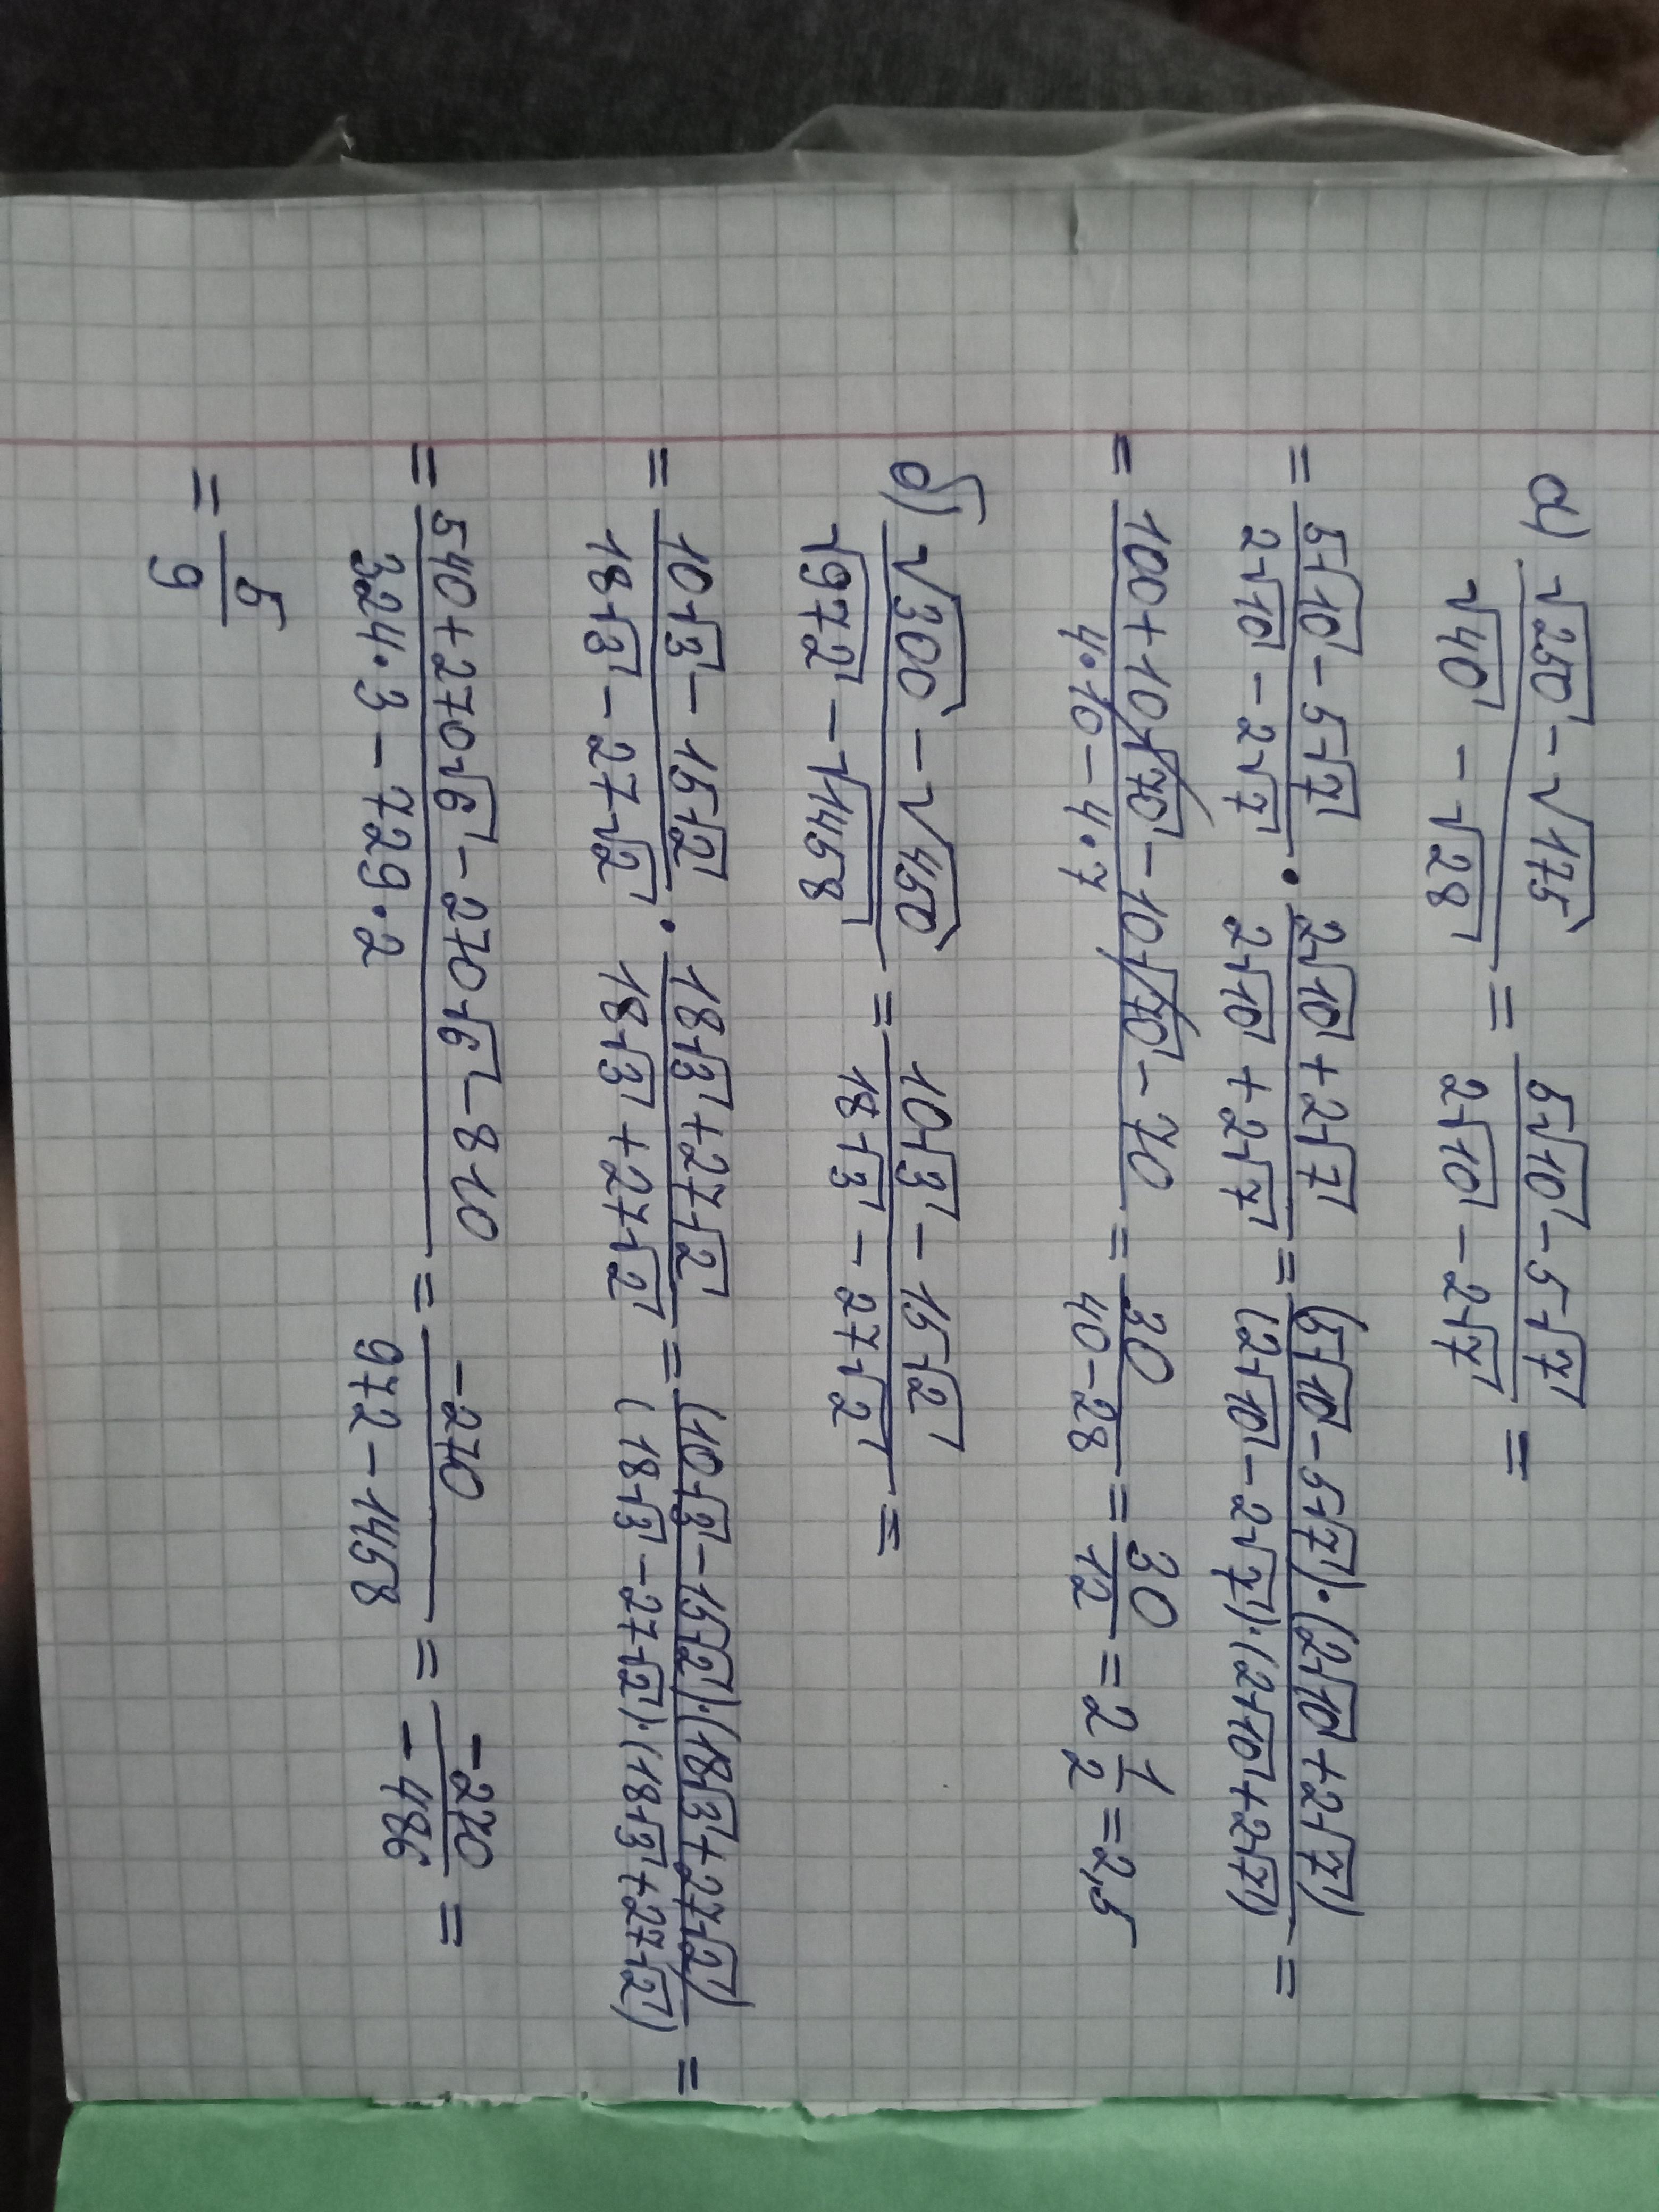 а) (√250 - √175)/(√40 - √28) = (5√10 - 5√7)/(2√10 - 2√7) =
= (5√10 - 5√7)/(2√10 - 2√7) · (2√10 + 2√7)/(2√10 + 2√7) = ((5√10 - 5√7)·(2√10 + 2√7))/((2√10 - 2√7)·(2√10 + 2√7)) =
= (100 + 10√70 - 10√70 - 70)/(4·10 - 4·7) = 30/(40 - 28) = 30/12 = 2 1/2 = 2,5
б) (√300 - √450)/(√972 - √1458) = (10√3 - 15√2)/(18√3 - 27√2) =
= (10√3 - 15√2)/(18√3 - 27√2) · (18√3 + 27√2)/(18√3 + 27√2) = ((10√3 - 15√2)·(18√3 + 27√2))/((18√3 - 27√2)·(18√3 + 27√2)) =
= (540 + 270√6 - 270√6 - 810)/(324·3 - 729·2) = (-270)/(972 - 1458) = (-270)/(-486) =
= 5/9